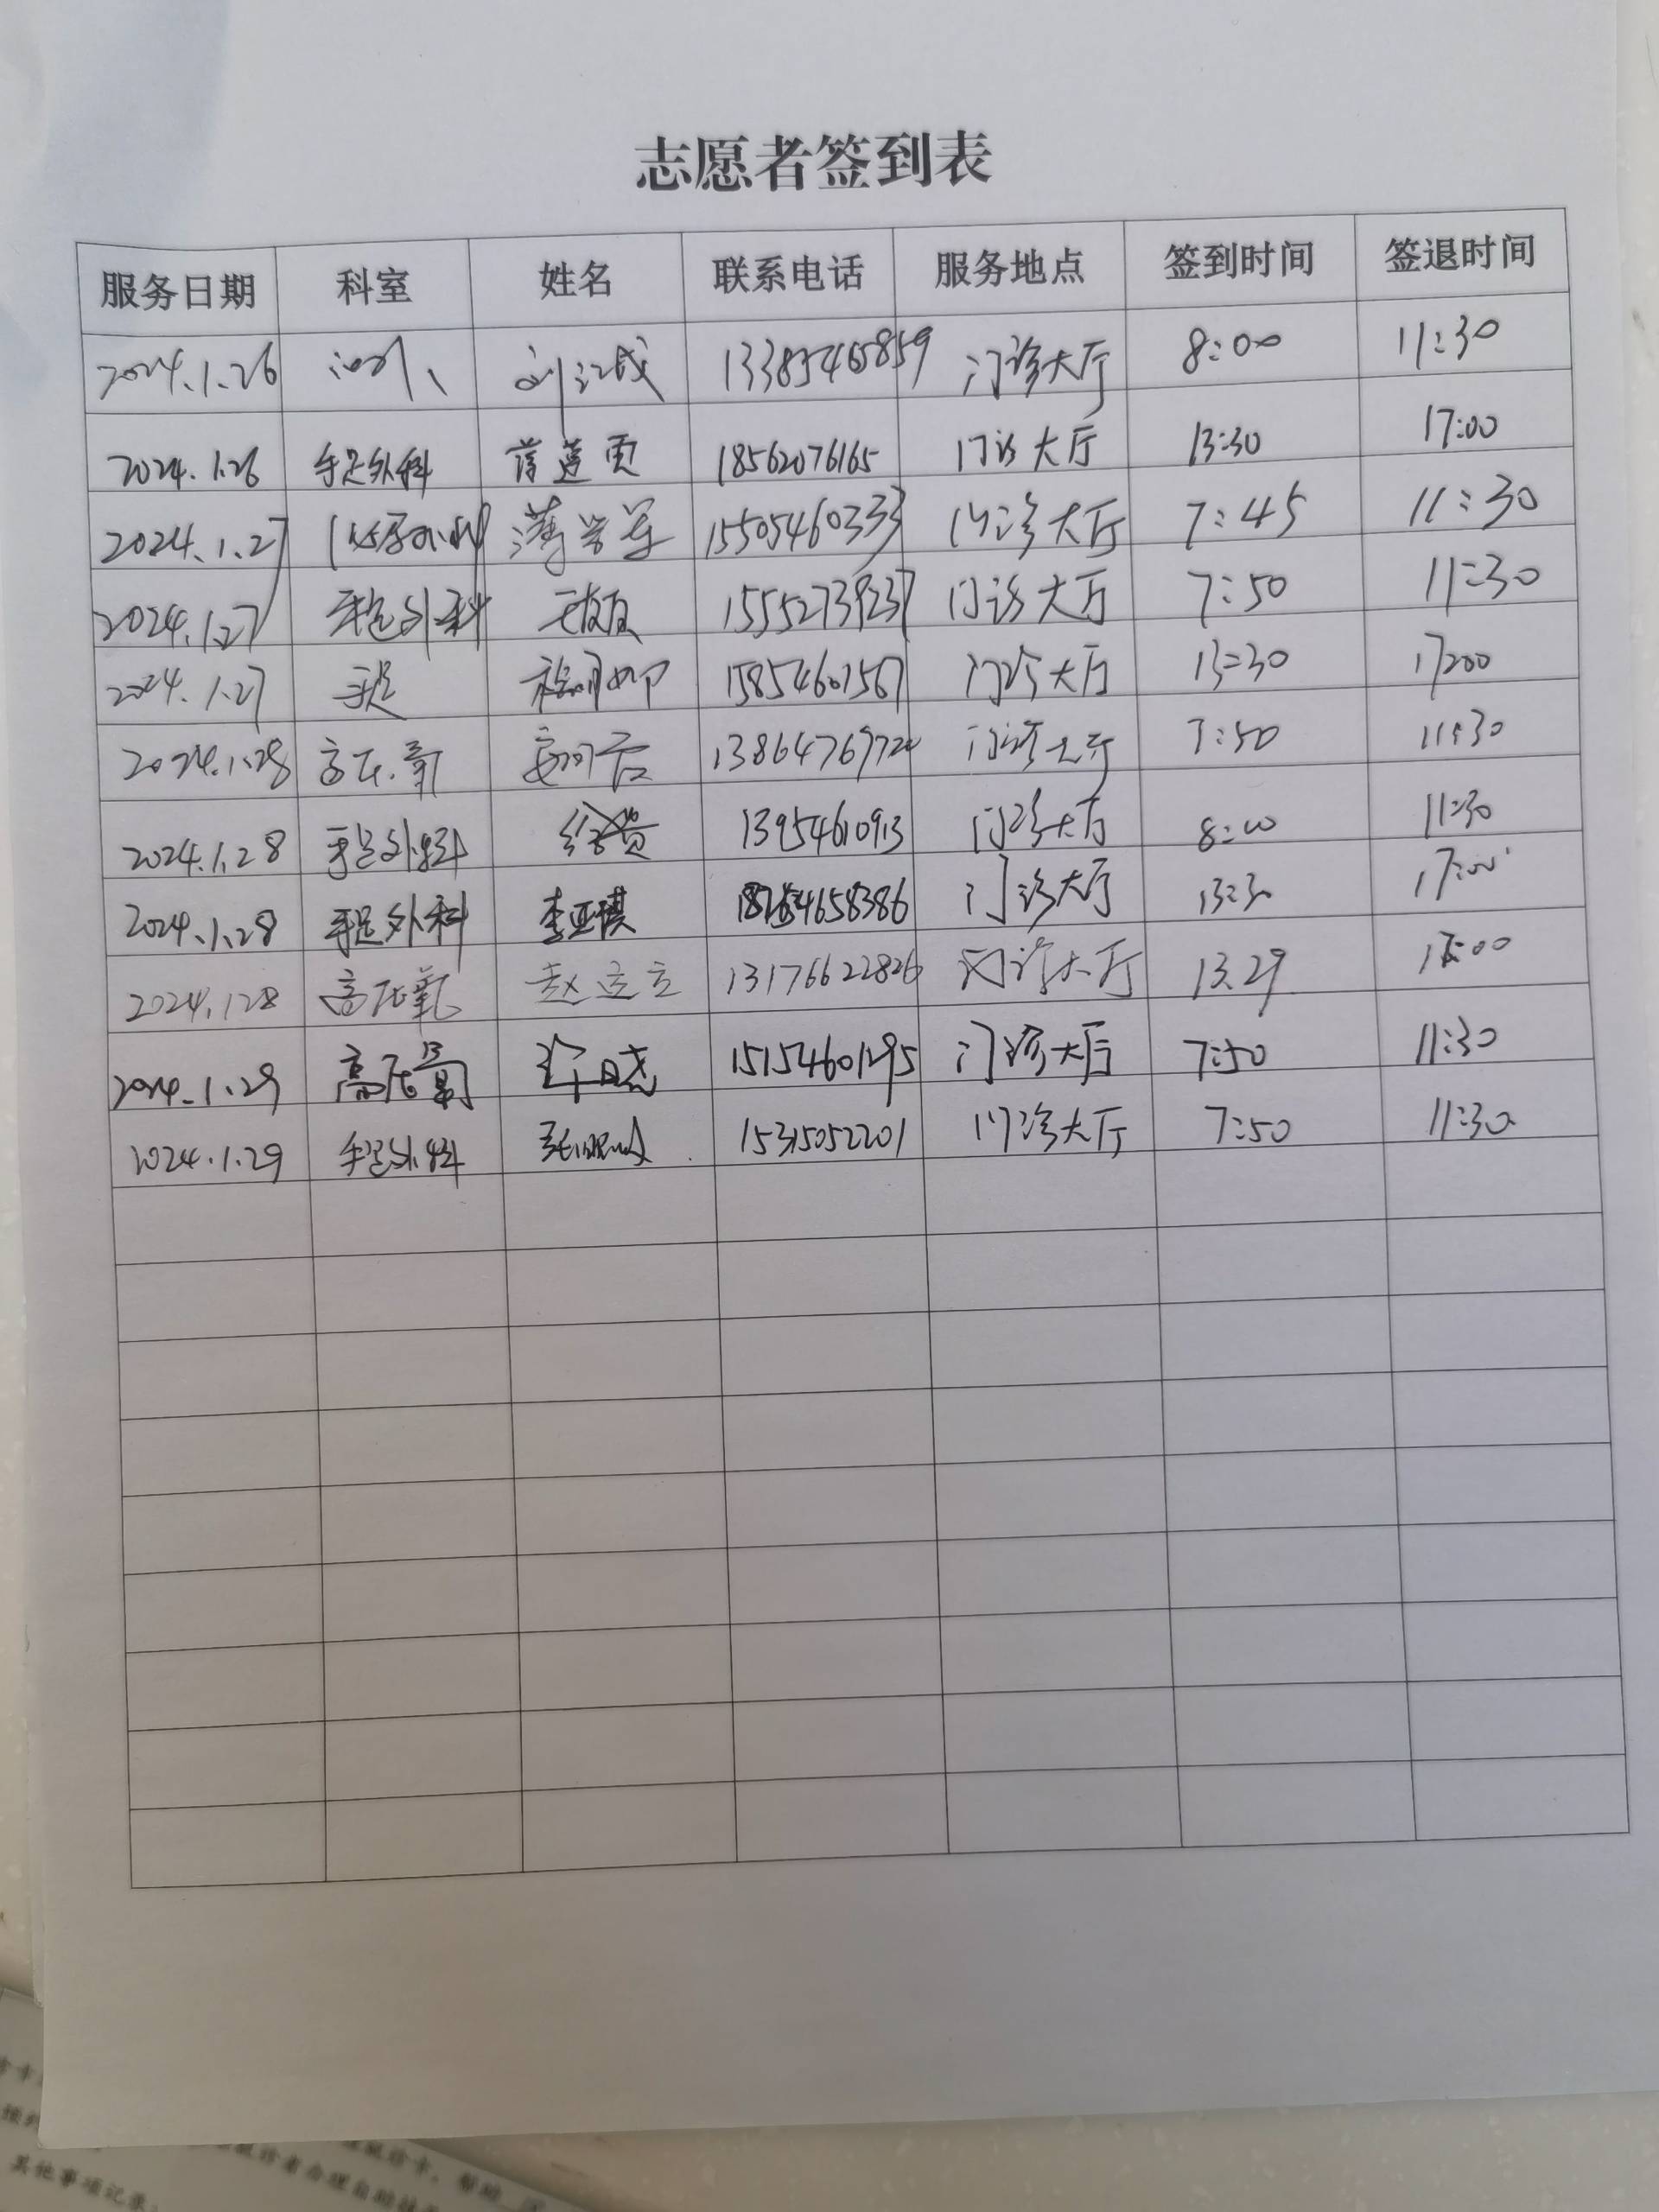 志愿者签到表
服务日期 科室 姓名 联系电话 服务地点 签到时间 签退时间
2024.1.26 刘江成 13385465859 门诊大厅 8:00 11:30
2024.1.26 手足外科 18562076165 门诊大厅 13:30 17:00
2024.1.27 15505460333 门诊大厅 7:45 11:30
2024.1.27 手足外科 15552739237 门诊大厅 7:50 11:30
2024.1.27 手足 15854601567 门诊大厅 13:30 17:00
2024.1.28 门诊大厅 7:50 11:30
2024.1.28 手足外科 13954610913 门诊大厅 8:00 11:30
2024.1.28 手足外科 李亚琪 18264658386 门诊大厅 13:30 17:00
2024.1.28 高压氧 13176622826 门诊大厅 13.29 17:00
2024.1.29 高压氧 15154601295 门诊大厅 7:50 11:30
2024.1.29 手足外科 15315052201 门诊大厅 7:50 11:30
其他事项记录: